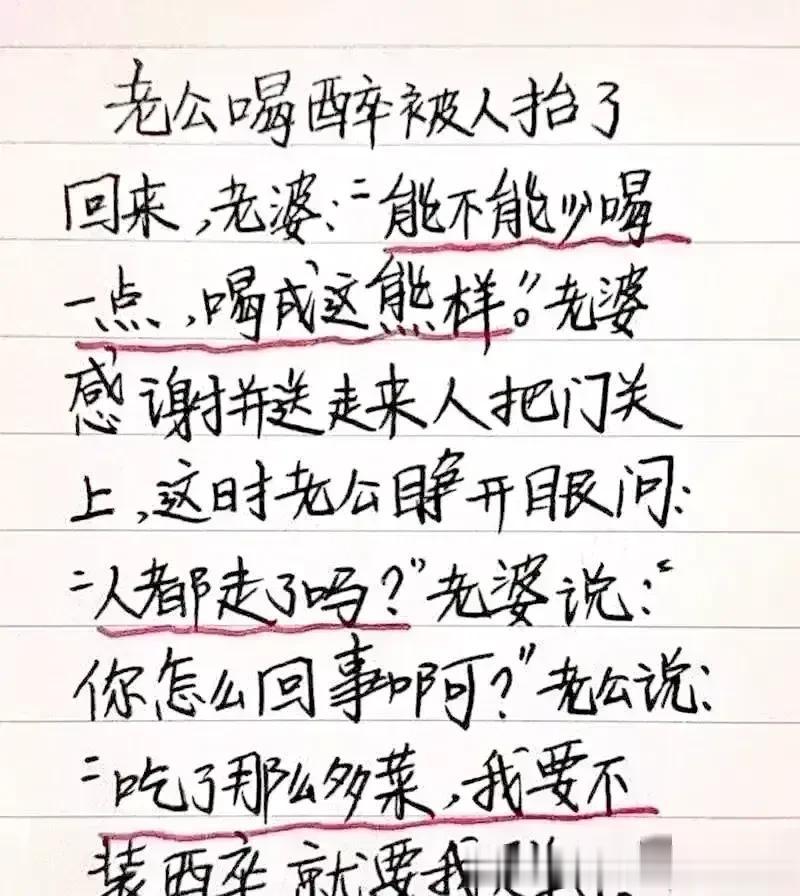 老公喝醉被人抬了
回来,老婆:“能不能少喝
一点,喝成这熊样。”老婆
感谢并送走来人把门关
上,这时老公睁开眼问:
“人都走了吗?”老婆说:“
你怎么回事啊?”老公说:
“吃了那么多菜,我要不
装醉就要我